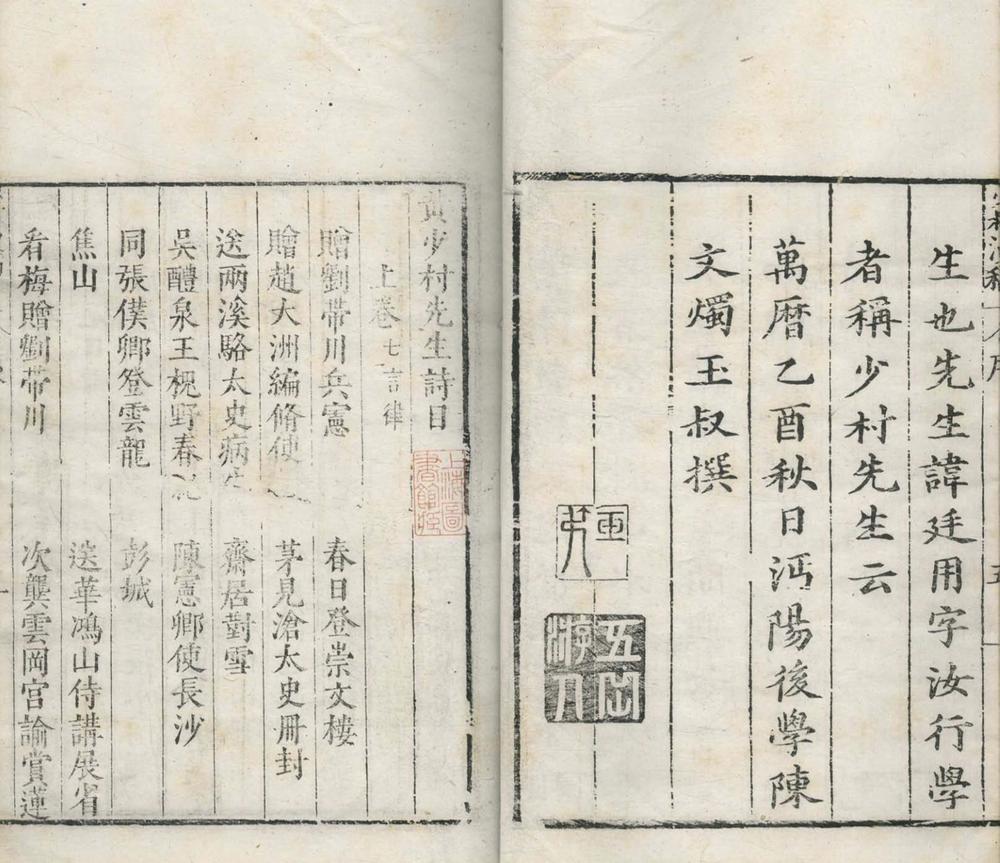 生也先生諱廷用字汝行學
者稱少村先生云
萬曆乙酉秋日沔陽後學陳
文燭玉叔撰
玉叔
五岳游人
黃少村先生詩目
上卷 七言律
贈劉帶川兵憲 春日登崇文樓
贈趙大洲編脩使 茅見滄太史冊封
送兩溪駱太史病 齋居對雪
吳醴泉王槐野春 陳憲卿使長沙
同張僕卿登雲龍 彭城
焦山 送華鴻山侍講展省
看梅贈劉帶川 次龔雲岡宮諭賞蓮
上海圖書館藏